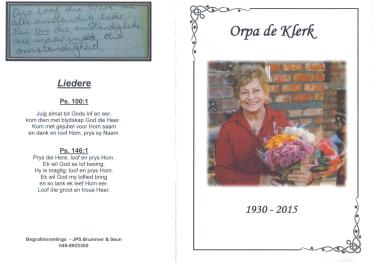 Ons loof die
alle omstandighede
nie vir die omstandighede
nie maar in die
omstandighede
Liedere
Ps. 100:1
Juig almal tot Gods lof en eer,
kom dien met blydskap God die Heer.
Kom met gejubel voor Hom saam
en dank en loof Hom, prys sy Naam.
Ps. 146:1
Prys die Here, loof en prys Hom.
Ek wil God se lof besing.
Hy is magtig; loof en prys Hom.
Ek wil God my loflied bring
en so lank ek leef Hom eer.
Loof die groot en troue Heer.
Begrafnisreëlings - JPS Brummer & Seun
049-8922360
Orpa de Klerk
1930 - 2015